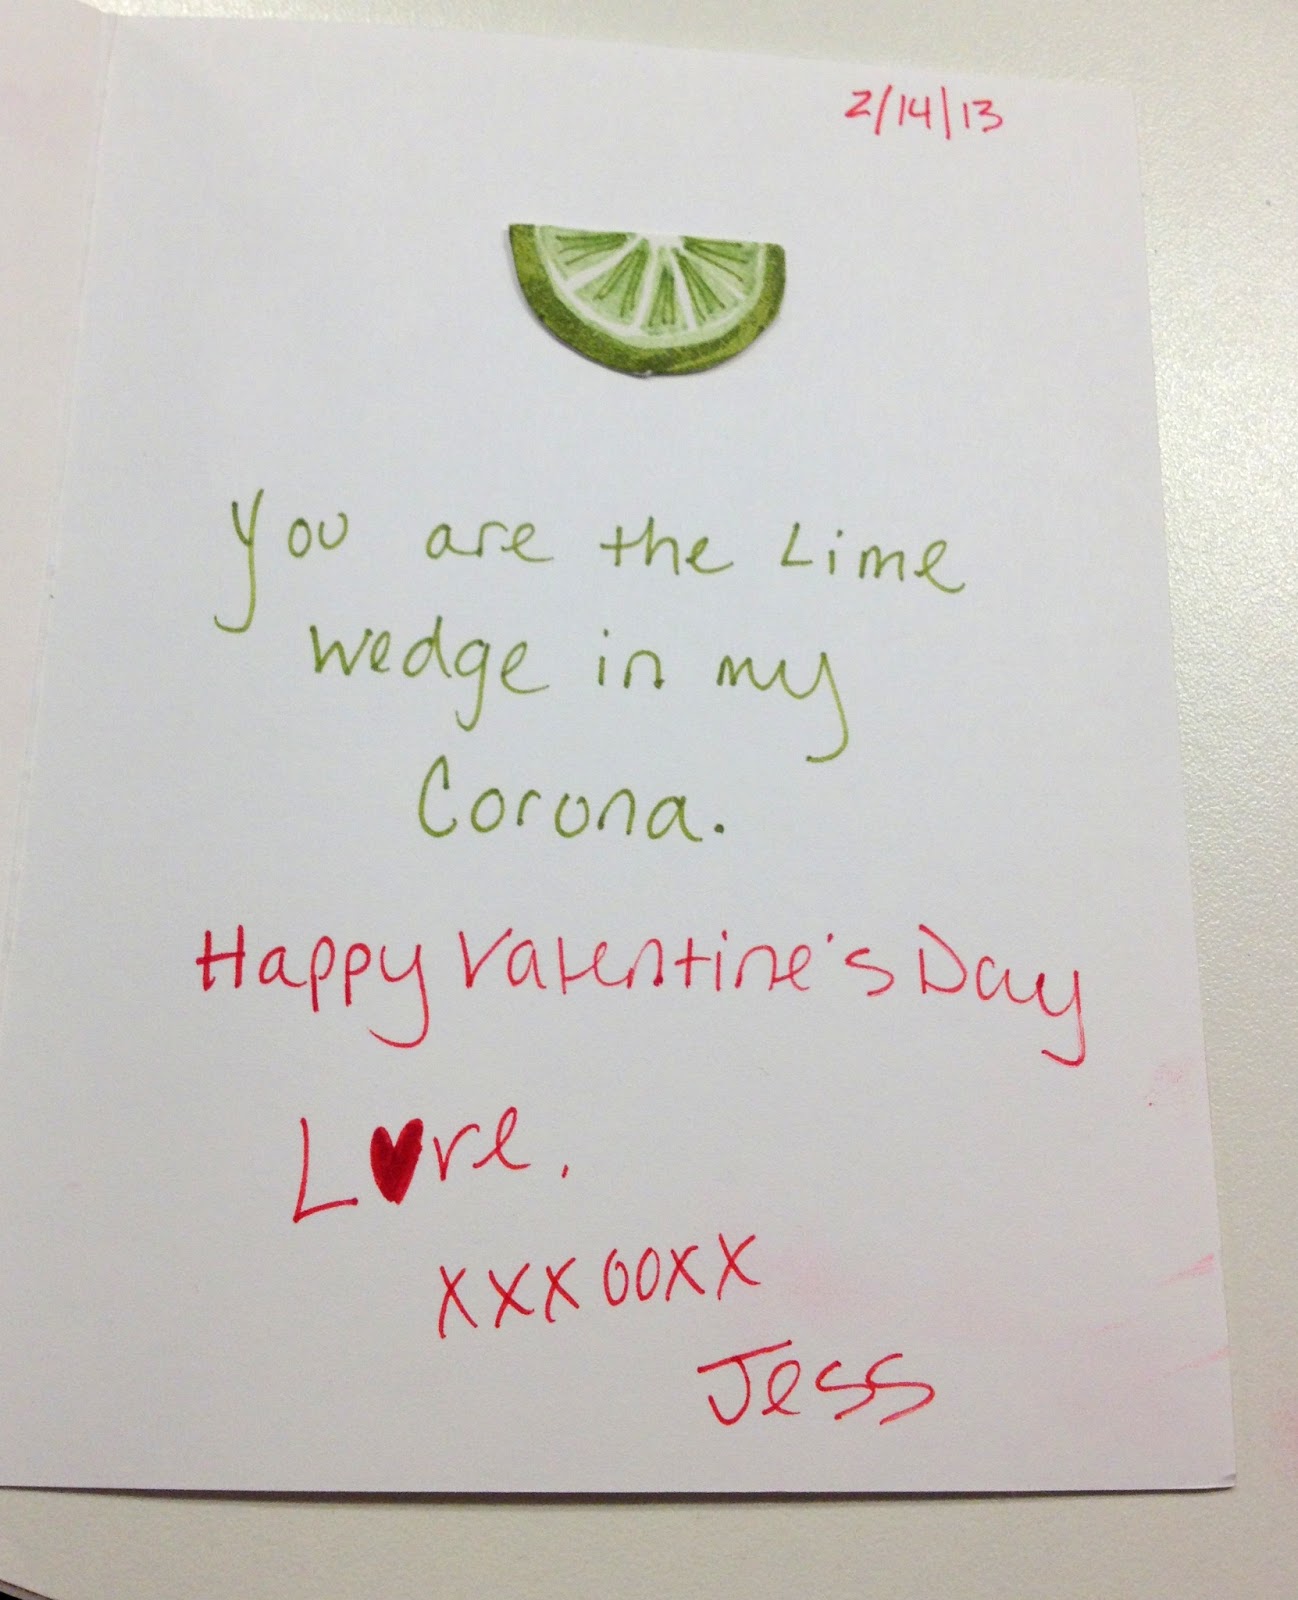 2/14/13
You are the Lime
wedge in my
Corona.
Happy Valentine's Day
L♥ve,
XXXOOXX
Jess